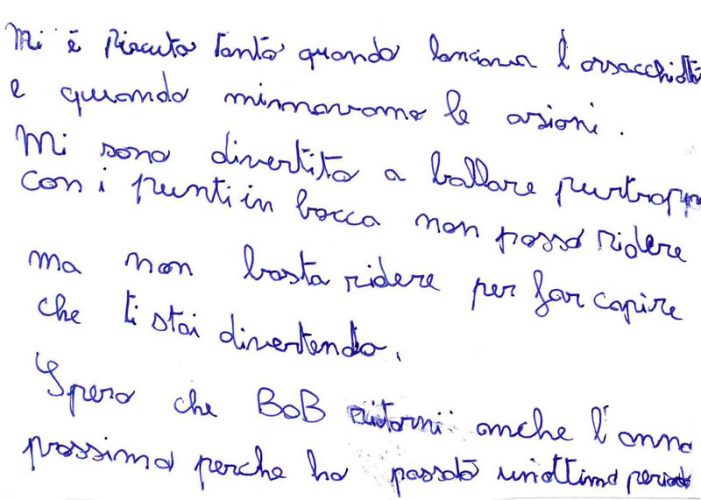 Mi è Piaciuto tanto quando lanciava l'orsacchiott
e quando mimavamo le asioni.
Mi sono divertito a ballare purtropp
con i punti in bocca non posso ridere
ma non basta ridere per far capire
che ti stai divertendo.
Spero che BOB ritorni anche l'anno
prossimo perche ho passato un'ottimo periodo